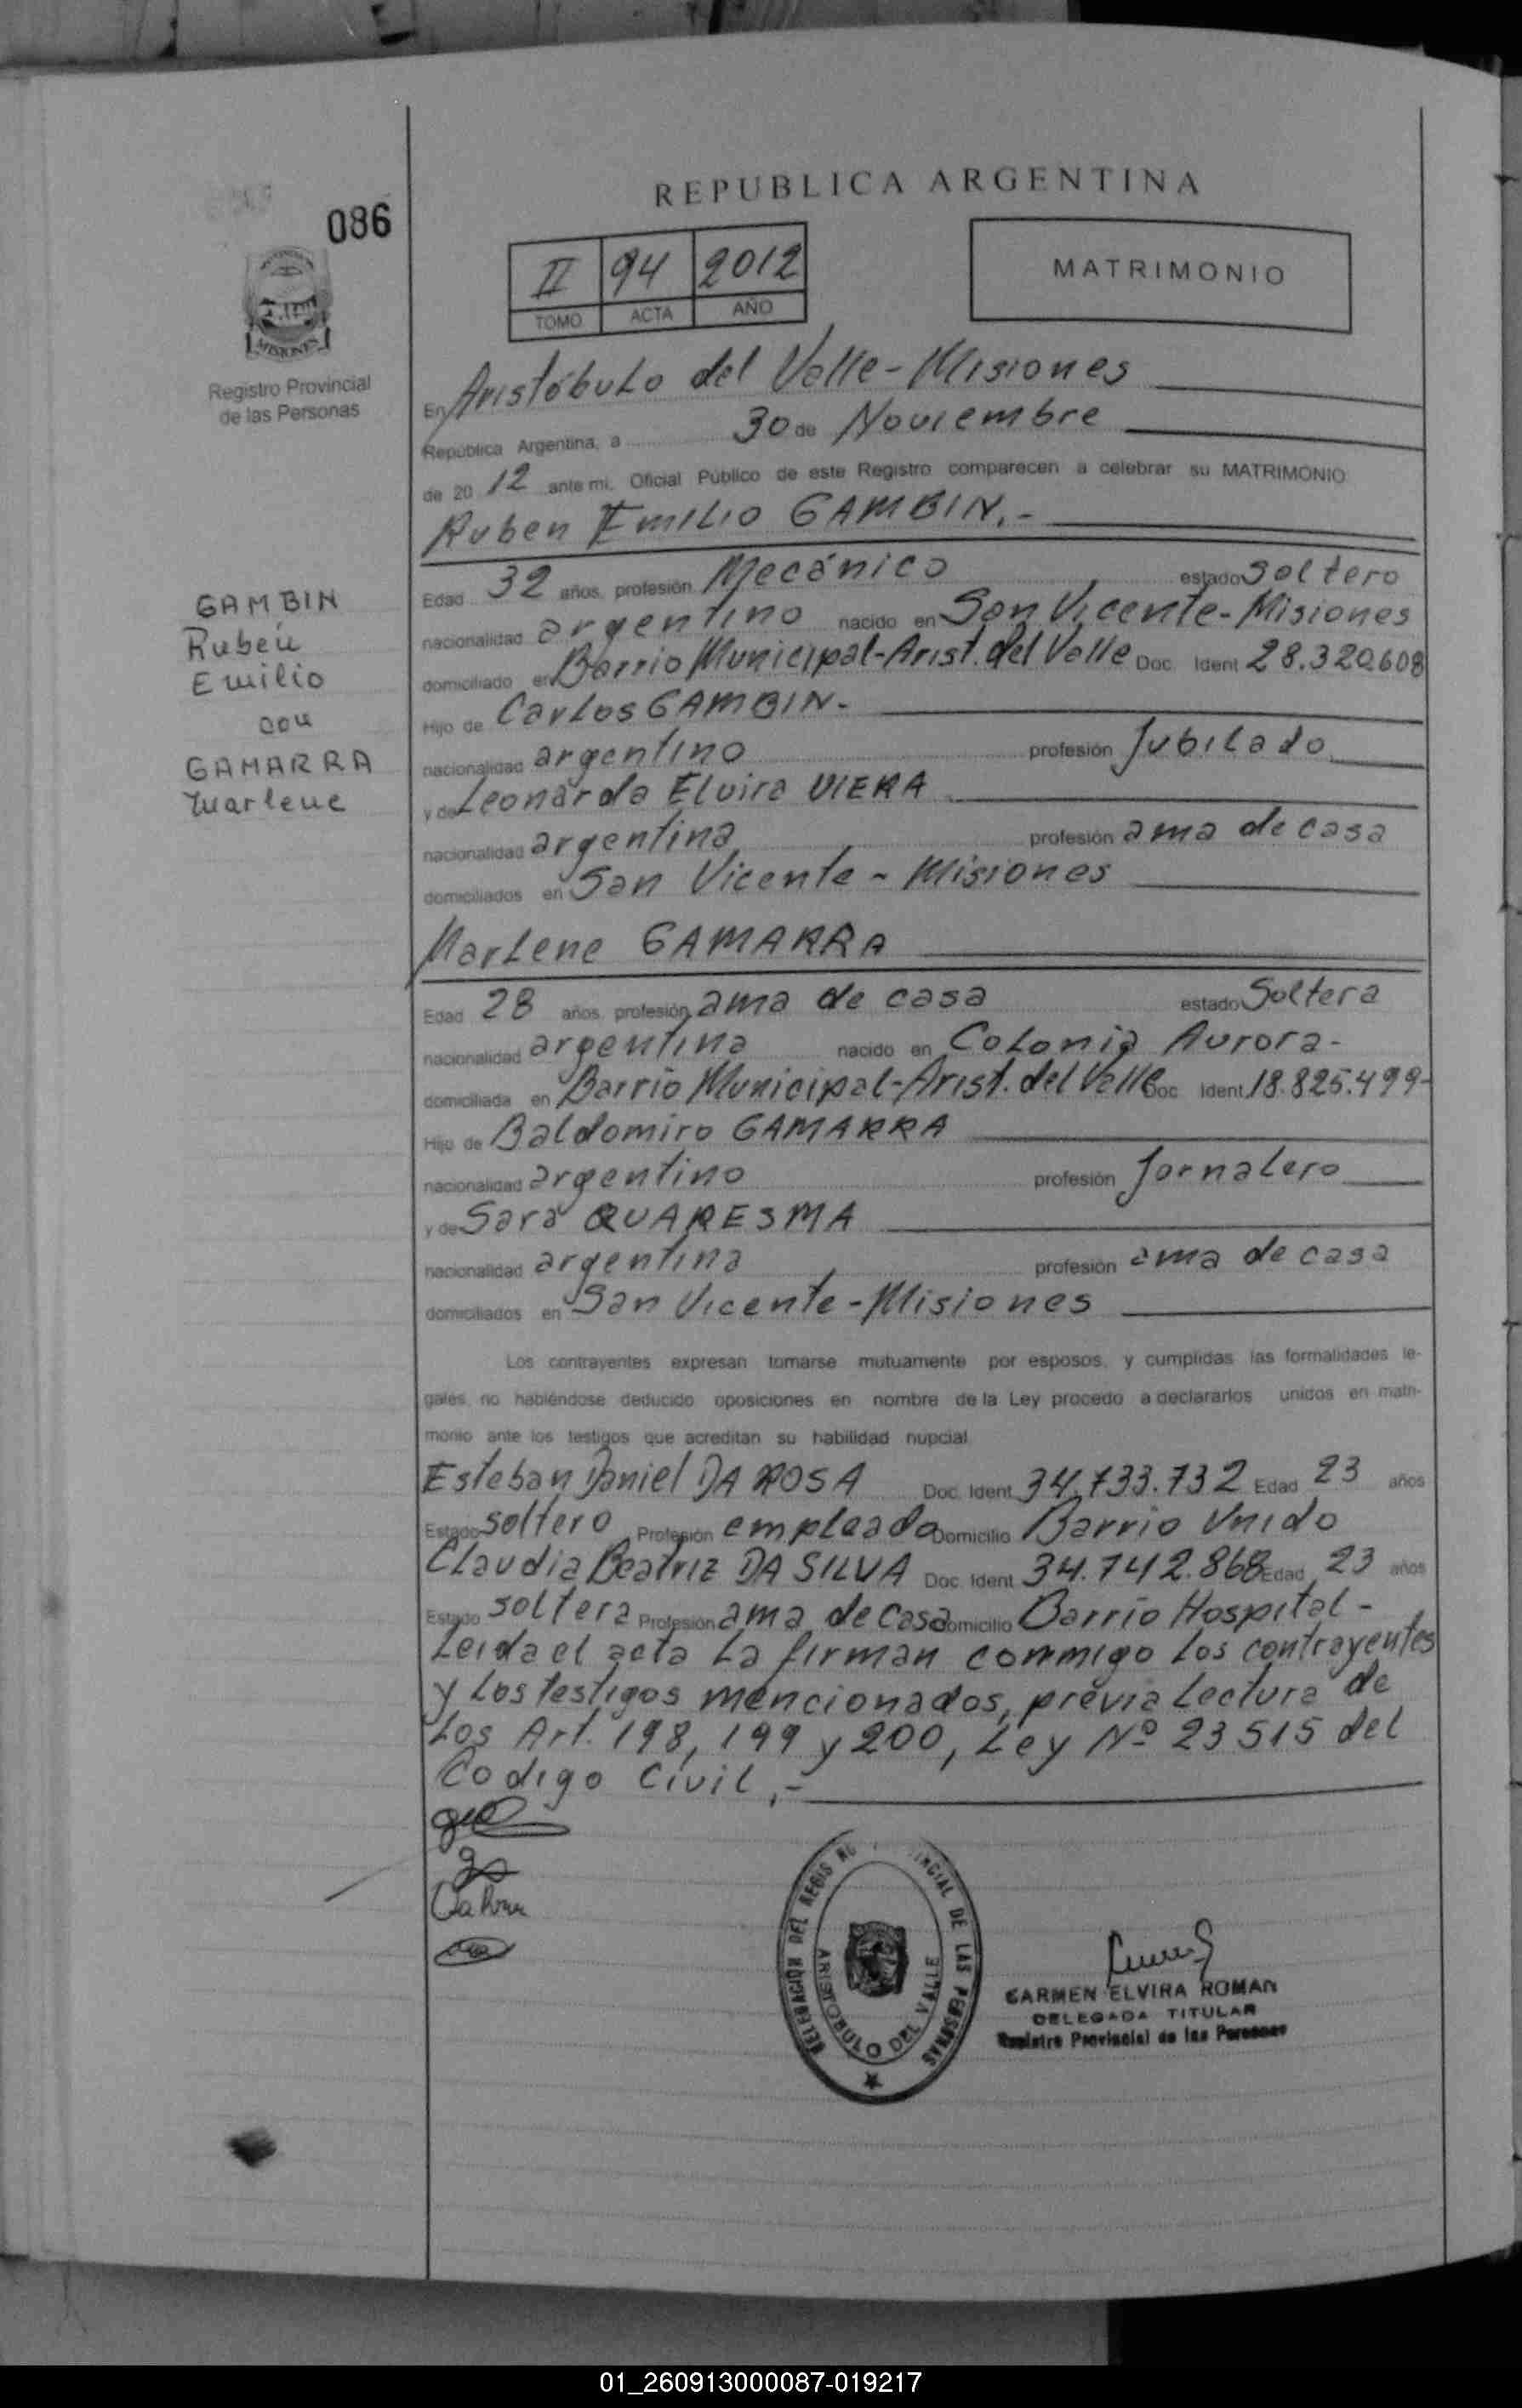 REPUBLICA ARGENTINA
086
II 94 2012
TOMO ACTA AÑO
MATRIMONIO
MISIONES
Registro Provincial
de las Personas
En Aristóbulo del Valle - Misiones
República Argentina, a 30 de Noviembre
de 20 12 ante mi, Oficial Público de este Registro comparecen a celebrar su MATRIMONIO
Ruben Emilio GAMBIN.-
GAMBIN
Rubén
Emilio
con
GAMARRA
Marlene
Edad 32 años, profesión Mecánico estado soltero
nacionalidad argentino nacido en San Vicente - Misiones
domiciliado en Barrio Municipal - Arist. del Valle Doc. Ident 28.320.608
Hijo de Carlos GAMBIN -
nacionalidad argentino profesión Jubilado
y de Leonarda Elvira VIERA
nacionalidad argentina profesión ama de casa
domiciliados en San Vicente - Misiones
Marlene GAMARRA
Edad 28 años, profesión ama de casa estado Soltera
nacionalidad argentina nacido en Colonia Aurora -
domiciliada en Barrio Municipal - Arist. del Valle Doc Ident 18.825.499-
Hijo de Baldomiro GAMARRA
nacionalidad argentino profesión Jornalero
y de Sara QUARESMA
nacionalidad argentina profesión ama de casa
domiciliados en San Vicente - Misiones
Los contrayentes expresan tomarse mutuamente por esposos, y cumplidas las formalidades le-
gales, no habiéndose deducido oposiciones en nombre de la Ley procedo a declararlos unidos en matri-
monio ante los testigos que acreditan su habilidad nupcial
Esteban Daniel DA ROSA Doc. Ident 34.733.732 Edad 23 años
Estado soltero Profesión empleado Domicilio Barrio Unido
Claudia Beatriz DA SILVA Doc. Ident 34.742.868 Edad 23 años
Estado soltera Profesión ama de casa Domicilio Barrio Hospital -
Leida el acta la firman conmigo los contrayentes
y los testigos mencionados, previa lectura de
los Art. 198, 199 y 200, Ley Nº 23515 del
Codigo Civil.-
DELEGACION DEL REGIS NCIAL DE LAS PERSONAS
ARISTOBULO DEL VALLE
CARMEN ELVIRA ROMAN
DELEGADA TITULAR
Registro Provincial de las Personas
01_260913000087-019217